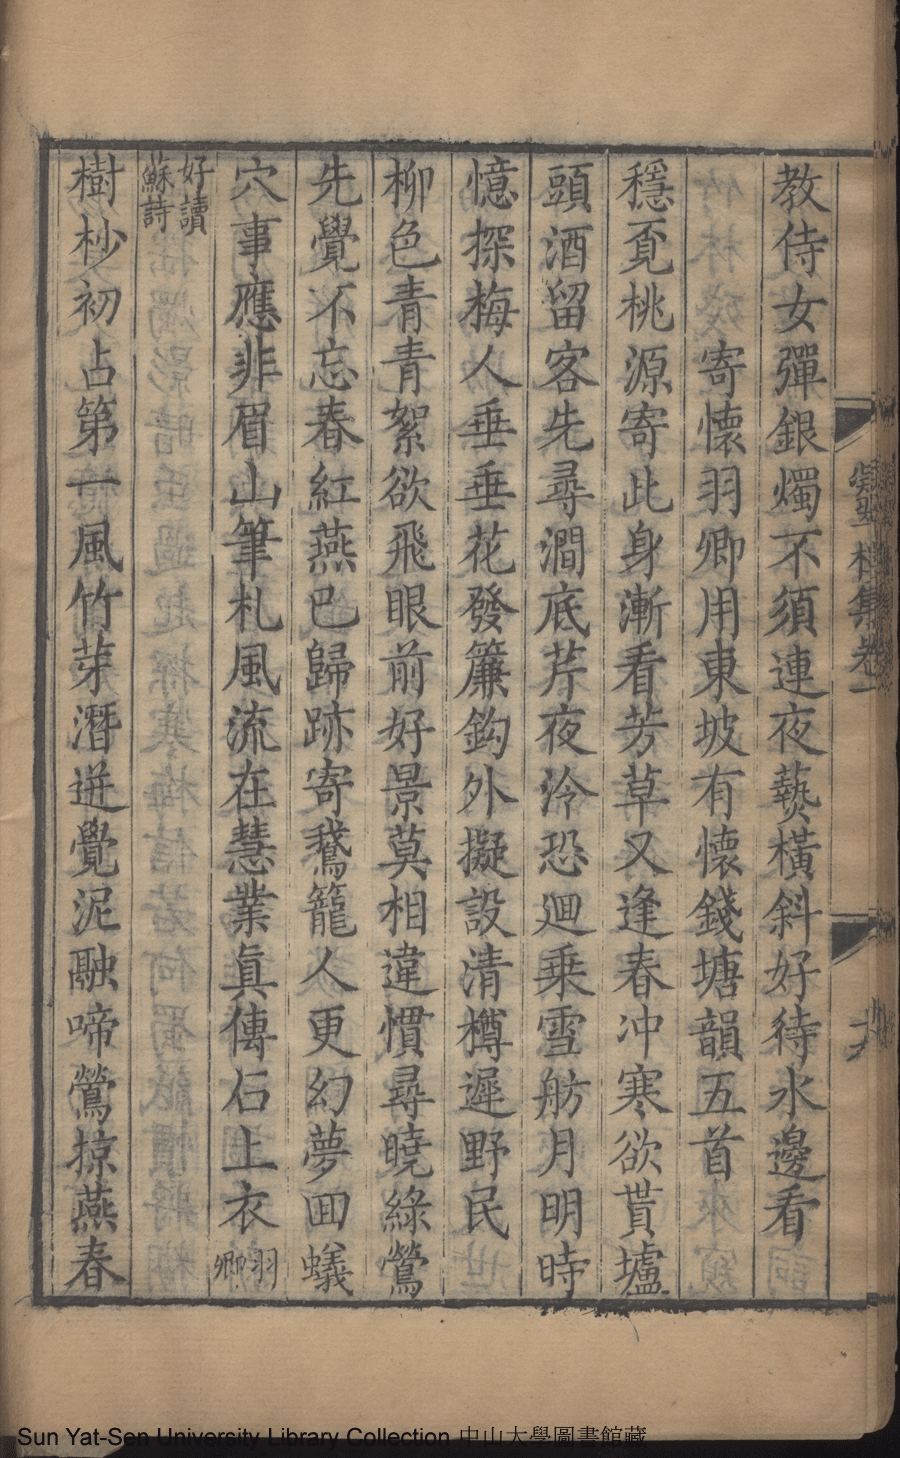 教侍女彈銀燭不須連夜爇橫斜好待水邊看
寄懷羽卿用東坡有懷錢塘韻五首
穩覔桃源寄此身漸看芳草又逢春冲寒欲貰壚
頭酒留客先尋澗底芹夜泠恐迴乗雪舫月明時
憶探梅人垂垂花發簾鈎外擬設清樽遲野民
柳色青青絮欲飛眼前好景莫相違慣尋曉綠鶯
先覺不忘春紅燕巴歸跡寄鵞籠人更幻夢回蟻
穴事應非眉山筆札風流在慧業眞傳石上衣羽卿
好讀蘇詩
樹杪初占第一風竹芽潛迸覺泥融啼鶯掠燕春
樓集卷一
十六
Sun Yat-Sen University Library Collection 中山大學圖書館藏